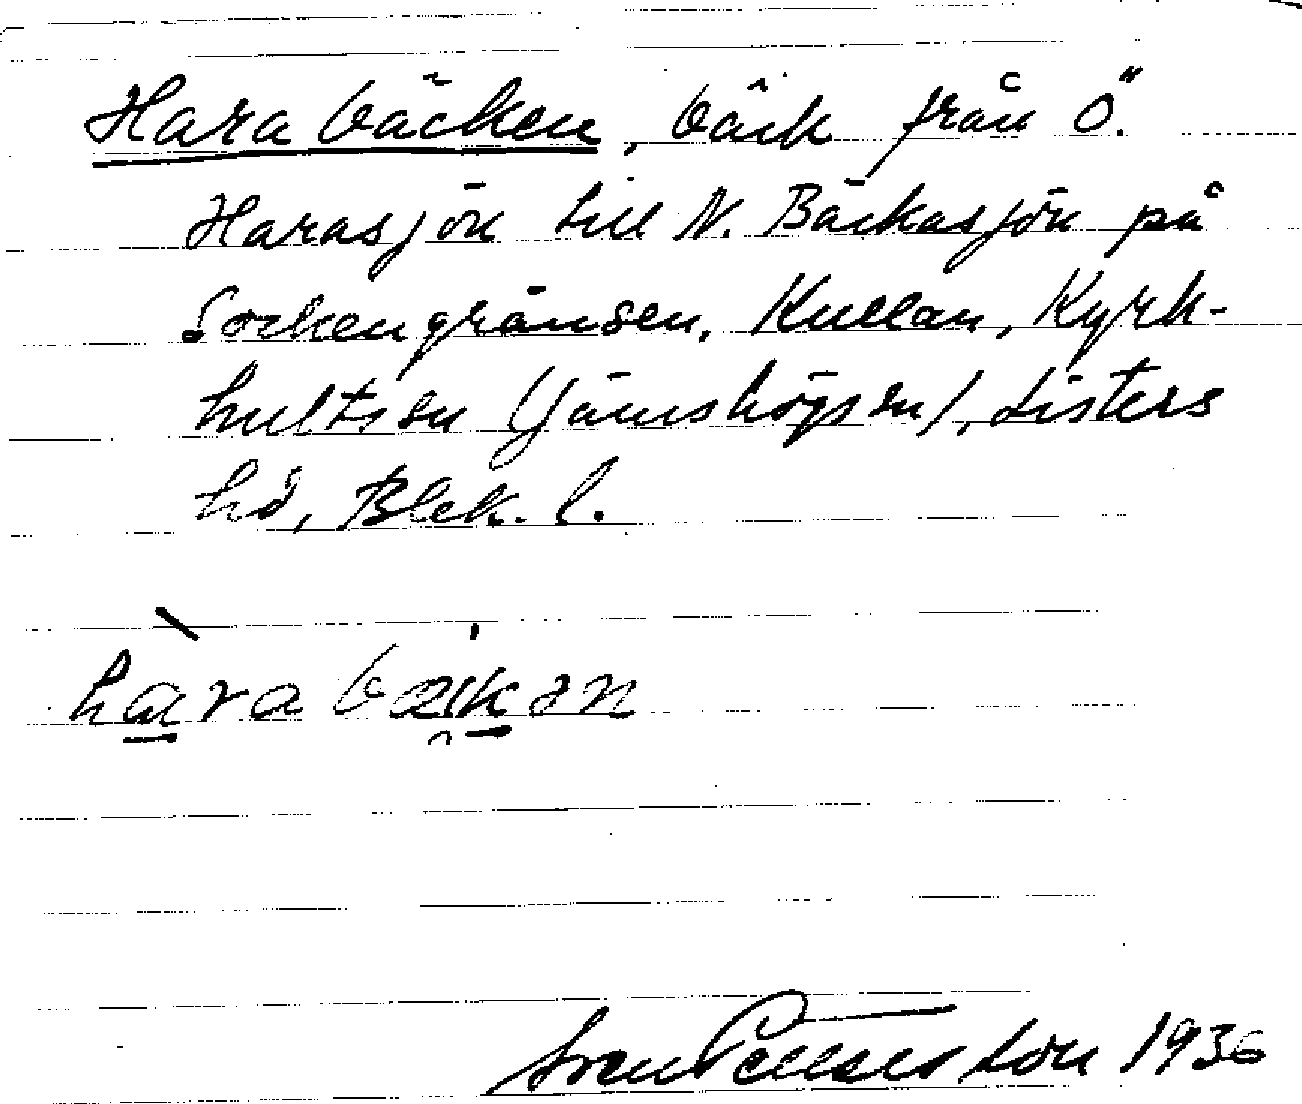 Harabäcken, bäck från Ö.
Harasjön till N. Bäckasjön på
Sockengränsen, Kullan, Kyrk-
hults sn (Jämshögs sn), Listers
hd, Blek. l.
hàrabækən
Sven 1936